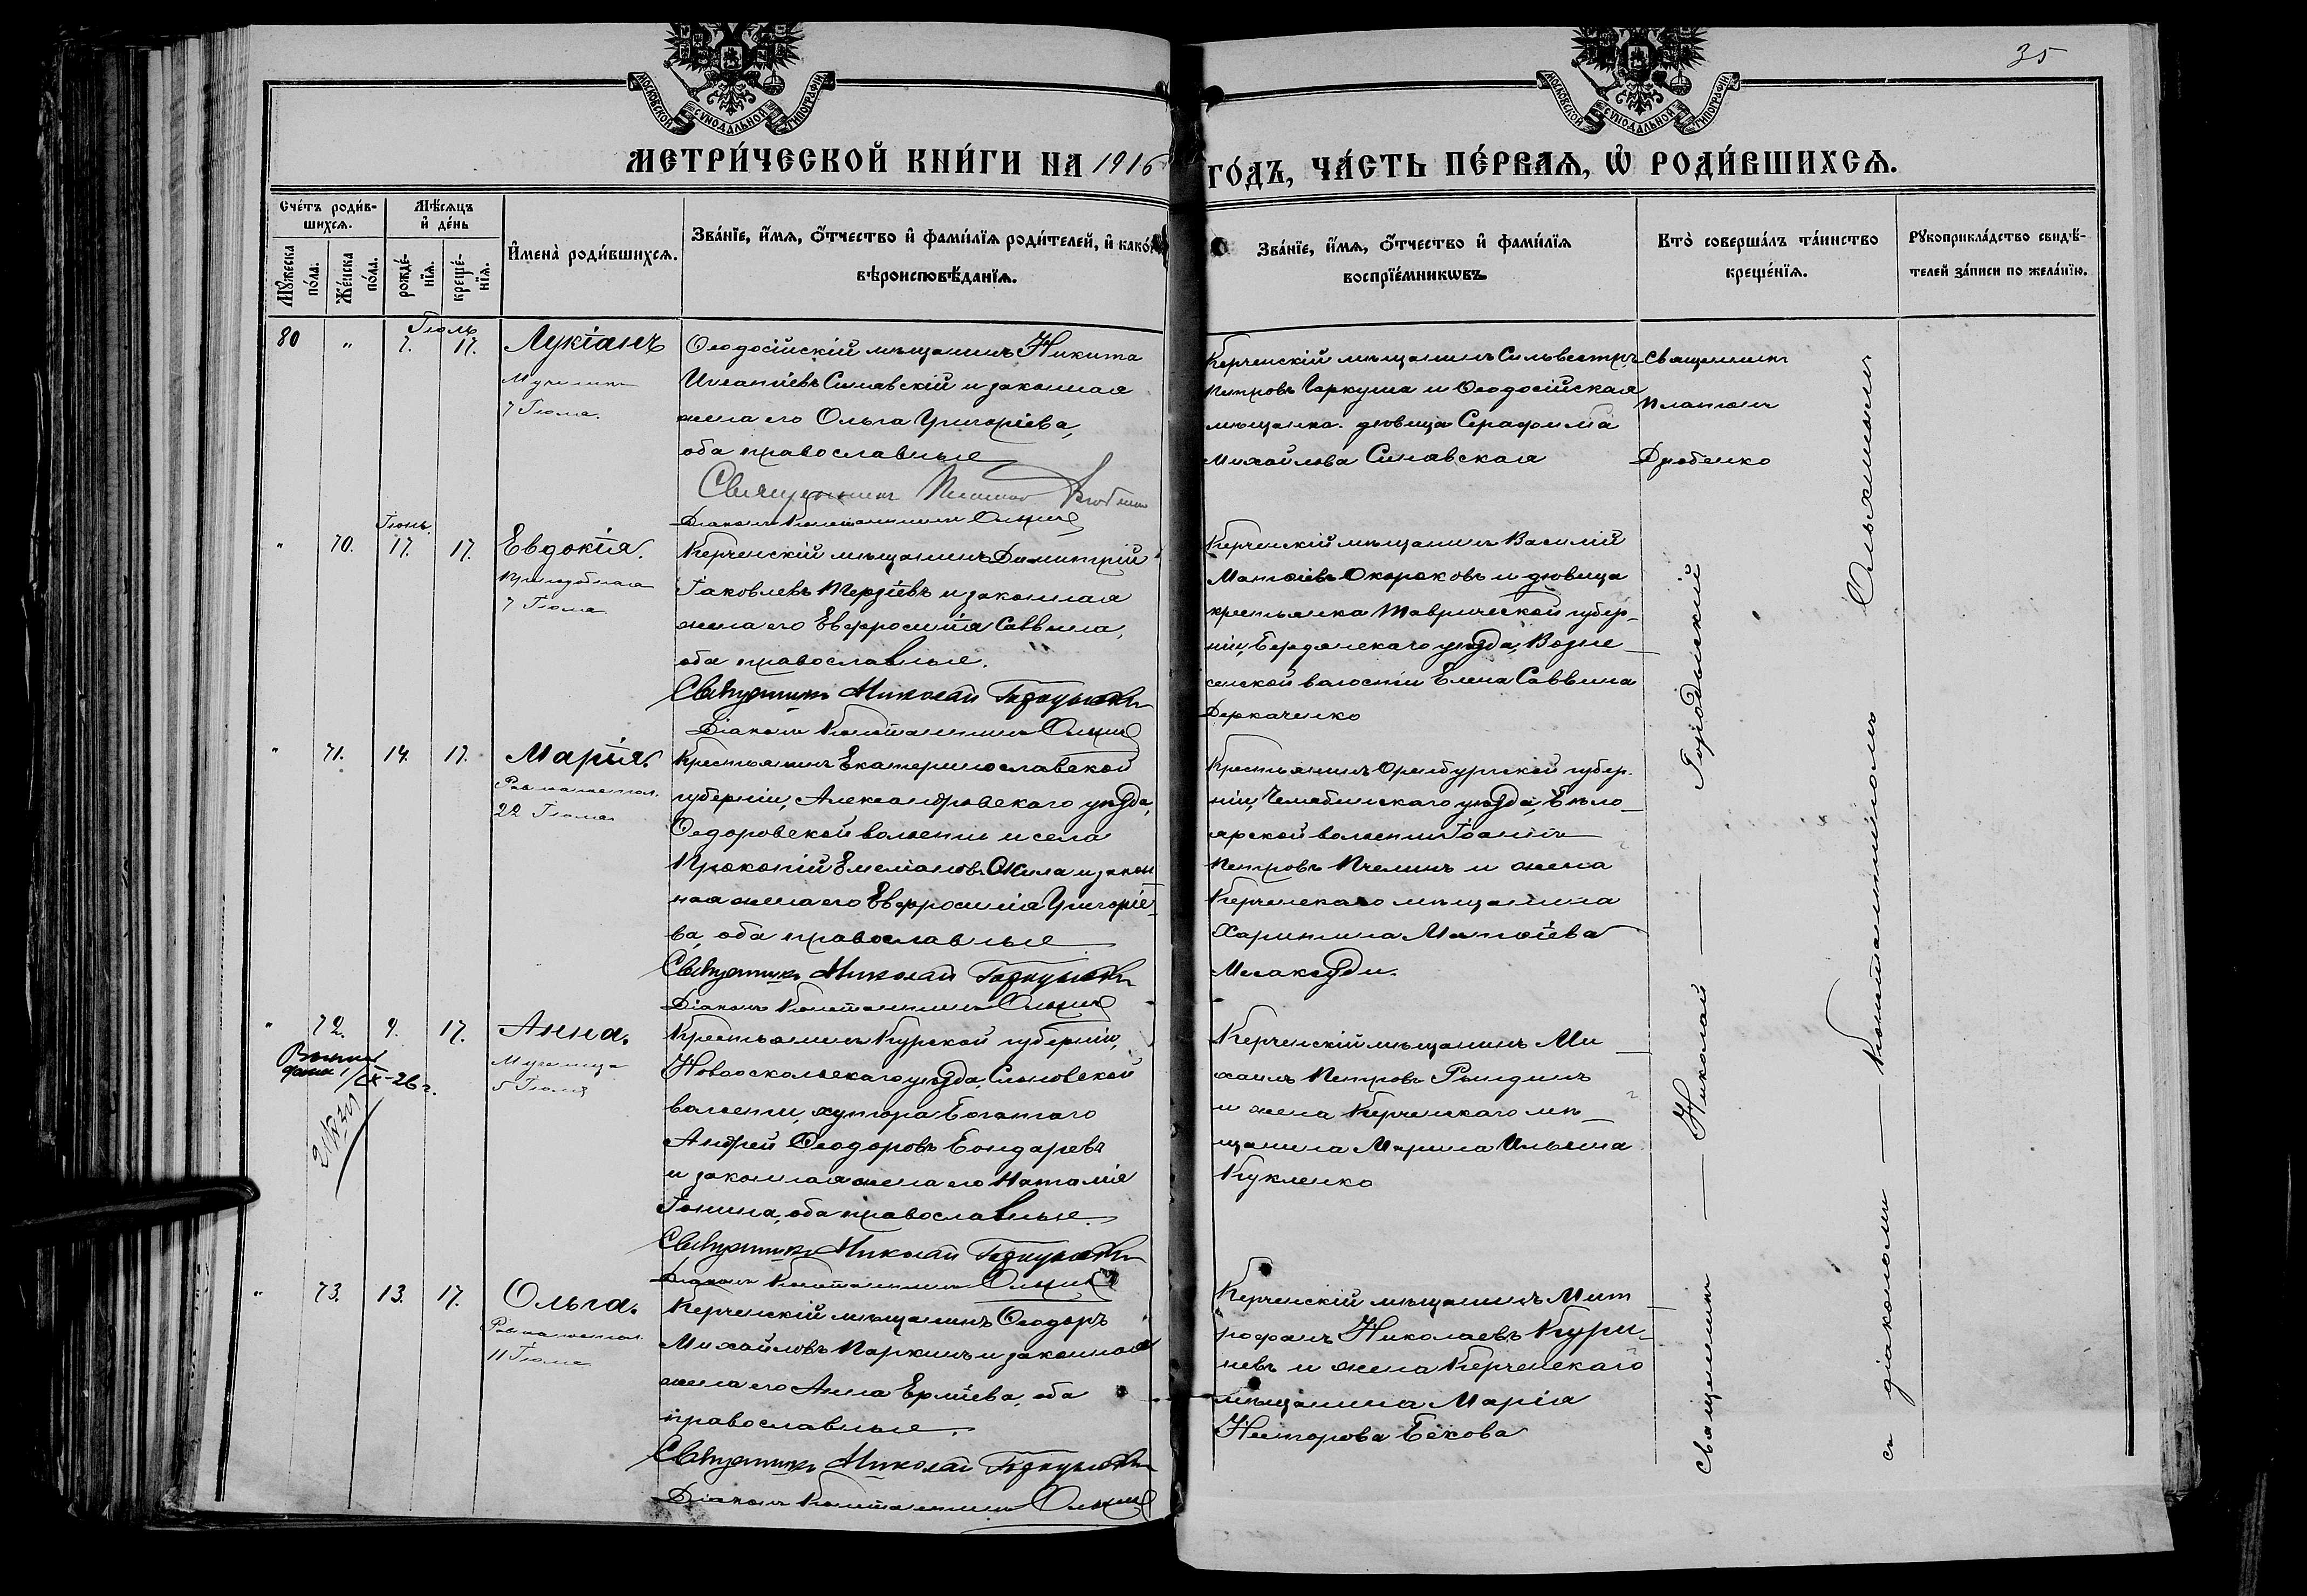 35
МОСКОВСКОЙ СѴНОДАЛЬНОЙ ТИПОГРАФІИ
МОСКОВСКОЙ СѴНОДАЛЬНОЙ ТИПОГРАФІИ
МЕТРИ́ЧЕСКОЙ КНИ́ГИ НА 1916 ГО́ДЪ, ЧА́СТЬ ПЕ́РВАѦ, Ѡ҆ РОДИ́ВШИХСѦ.
Сче́тъ роди́вшихсѧ.
Мѣ́сѧцъ и҆ де́нь
Мꙋ́жеска по́ла.
Же́нска по́ла.
рожде́нїѧ.
креще́нїѧ.
И҆мена̀ роди́вшихсѧ.
Зва́нїе, и҆́мѧ, ѻ҆́тчество и҆ фами́лїѧ роди́телей, и҆ како́гѡ
вѣроисповѣ́данїѧ.
Зва́нїе, и҆́мѧ, ѻ҆́тчество и҆ фами́лїѧ
воспрїе́мникѡвъ.
Кто̀ соверша́лъ та́инство
креще́нїѧ.
Рꙋкоприкла́дство свидѣ́-
телей за́писи по жела́нїю.
Іюль
80 " 7. 17. Лукіанъ
Мученикъ
7 Іюля.
Ѳеодосійскій мѣщанинъ Никита
Синавскій и законная
жена его Ольга Григоріева,
оба православные
Священникъ Платонъ Дзюбенко
Діаконъ Константинъ
Керченскій мѣщанинъ Сильвестръ
Петровъ Гаркуша и Ѳеодосійская
мѣщанка дѣвица Серафима
Михайлова Синавская
Священникъ
Платонъ
Дзюбенко
Іюнь
" 70. 17. 17. Евдокія.
Преподобная
7 Іюля
Керченскій мѣщанинъ Димитрій
Іаковлевъ Терзіевъ и законная
жена его Евфросинія Саввина,
оба православные.
Священникъ Николай
Діаконъ Константинъ
Керченскій мѣщанинъ Василій
Матѳіевъ Окороковъ и дѣвица
крестьянка Таврической губер-
ніи, Бердянскаго уѣзда, Возне-
сенской волости Елена Саввина
Деркаченко
" 71. 14. 17. Марія.
Равноапостол.
22 Іюля
Крестьянинъ Екатеринославской
губерніи, Александровскаго уѣзда,
Ѳедоровской волости и села
Прокопій Емеліановъ и закон
ная жена его Евфросинія Григоріе-
ва, оба православные
Священникъ Николай
Діаконъ Константинъ
Крестьянинъ Оренбургской губер-
ніи, Челябинскаго уѣзда, Бѣло-
ярской волости Іоаннъ
Петровъ Пчелинъ и жена
Керченскаго мѣщанина
Харитина Матѳіева
" 72. 9. 17. Анна.
Мученица
5 Іюля
1/IX-26 г.
Крестьянинъ Курской губерніи,
Новооскольскаго уѣзда, Слоновской
волости, хутора Богатаго
Андрей Ѳеодоровъ Бондаревъ
и законная жена его Наталія
Іонина, оба православные.
Священникъ Николай
Діаконъ Константинъ
Керченскій мѣщанинъ Ми-
хаилъ Петровъ Рындинъ
и жена Керченскаго мѣ-
щанина Марина Ильина
Кукленко
" 73. 13. 17. Ольга.
Равноапостол.
11 Іюля
Керченскій мѣщанинъ Ѳеодоръ
Михайловъ Паркинъ и законная
жена его Анна Ермиева, оба
православные.
Священникъ Николай
Діаконъ Константинъ
Керченскій мѣщанинъ Мит
рофанъ Николаевъ Кури-
невъ и жена Керченскаго
мѣщанина Марія
Несторова Бекова
Священникъ — Николай —
съ діакономъ — Константиномъ